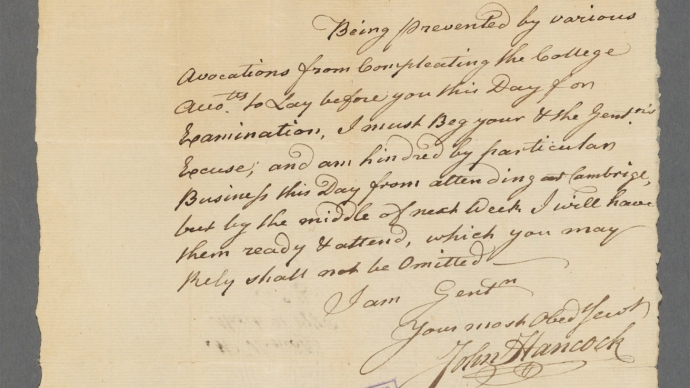 Being prevented by various
Avocations from Compleating the College
Acco.ts to Lay before you this Day for
Examination, I must Beg your & the Gent.n's
Excuse; and am hindred by particular
Business this Day from attending at Cambrige,
but by the middle of next Week I will have
them ready & attend, which you may
Rely shall not be Omitted
I am Gent.n
Your most Obed.t Serv.t
John Hancock